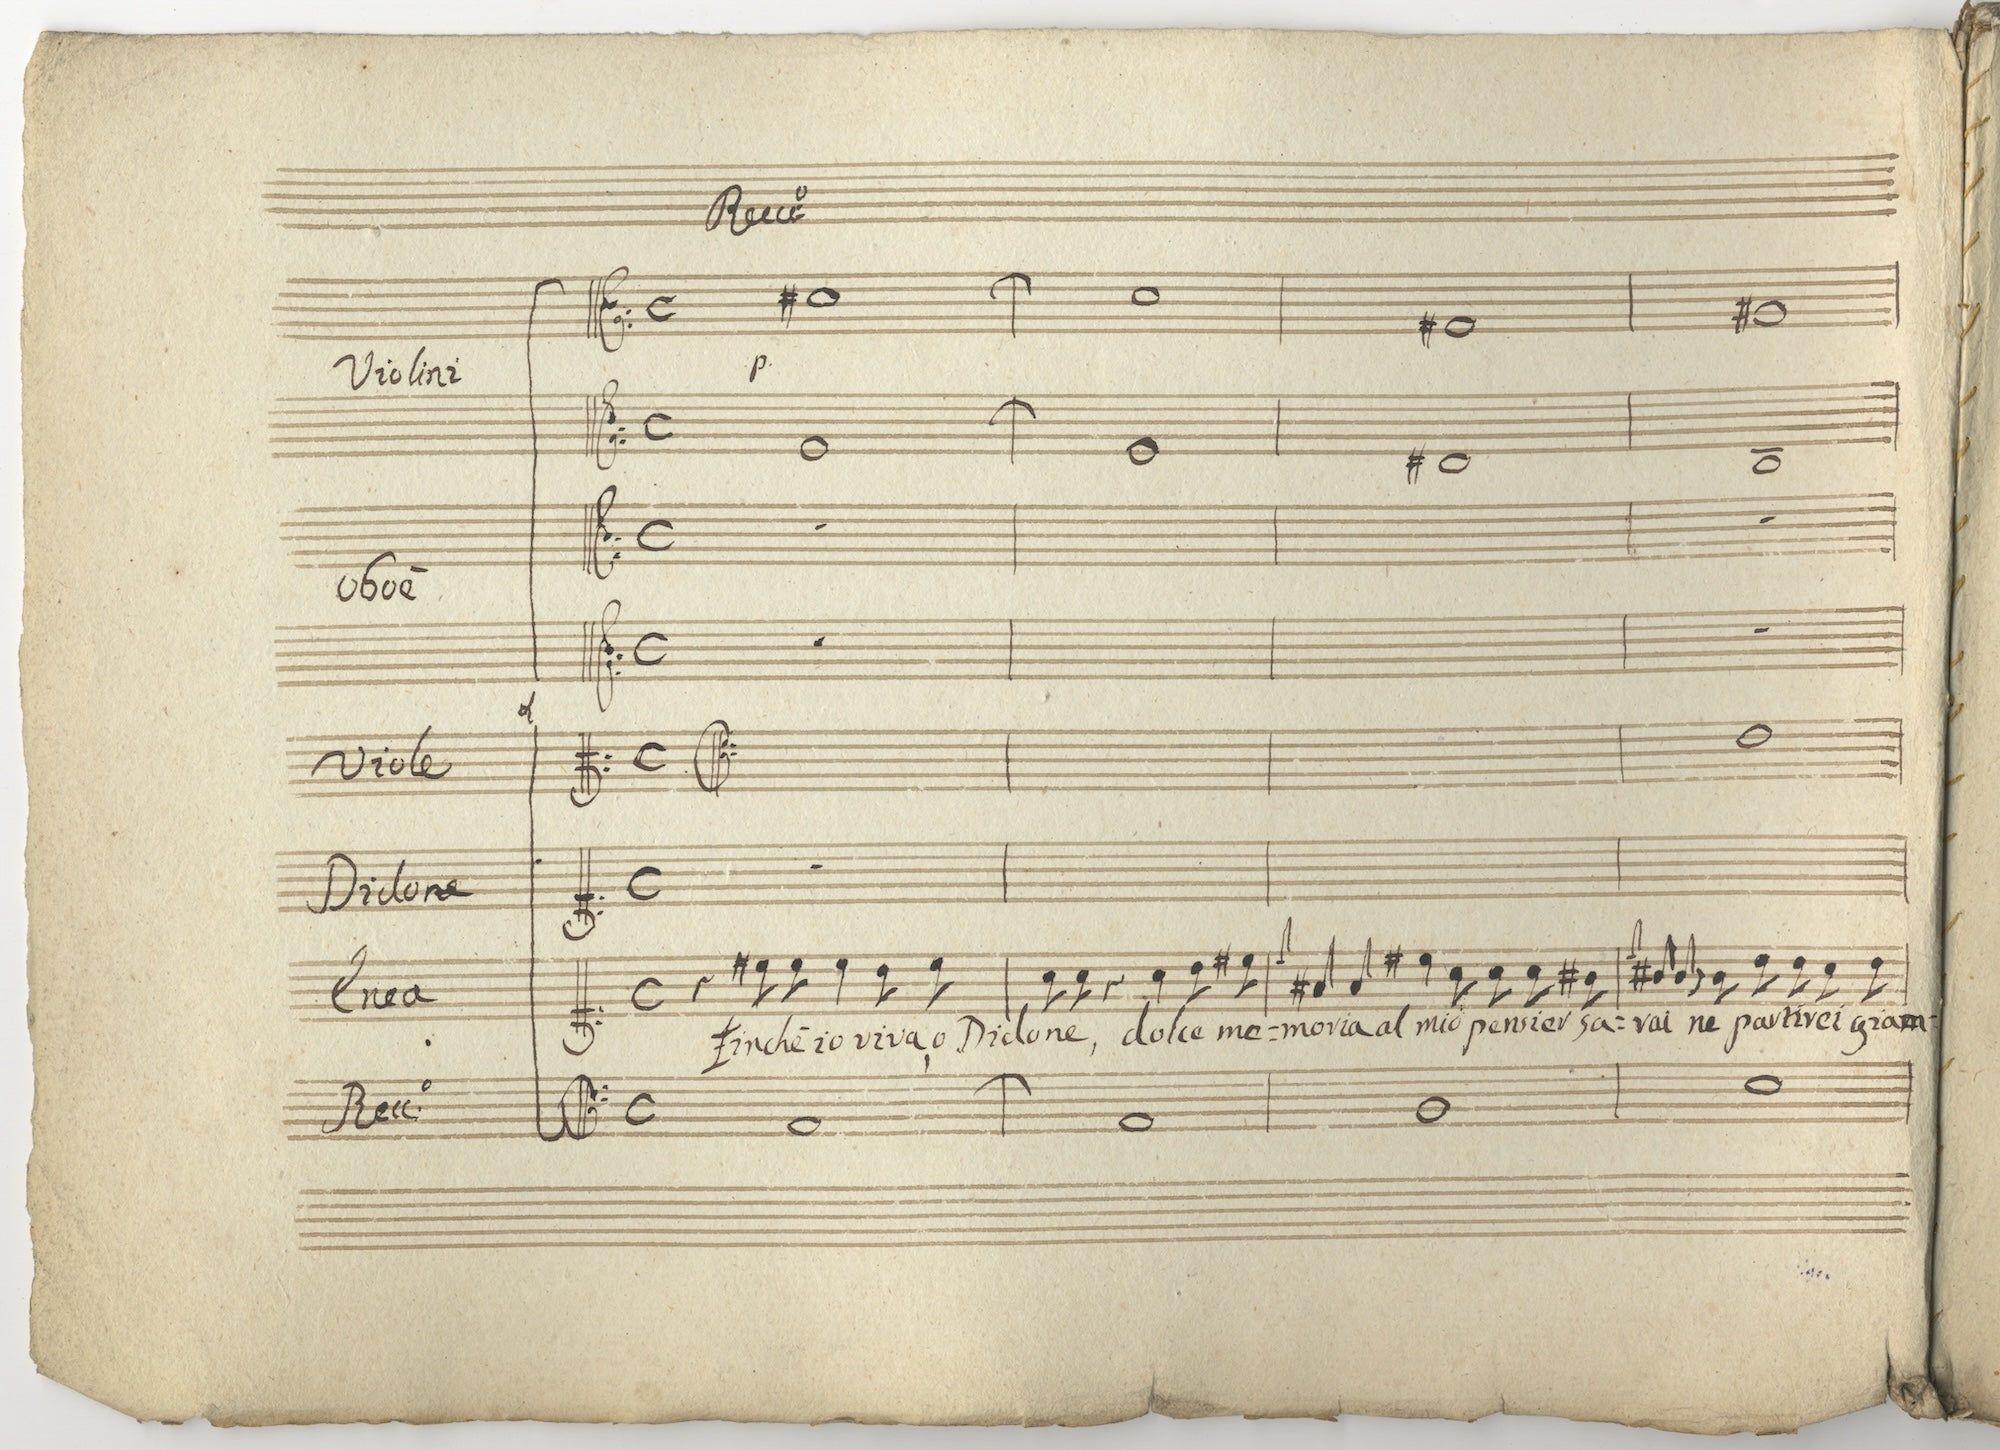 Recit.º
Violini
p.
oboè
Viole
Didone
Enea
Finchè io viva, o Didone, dolce me=moria al mio pensier sa=rai ne partirei giam=
Rec.º